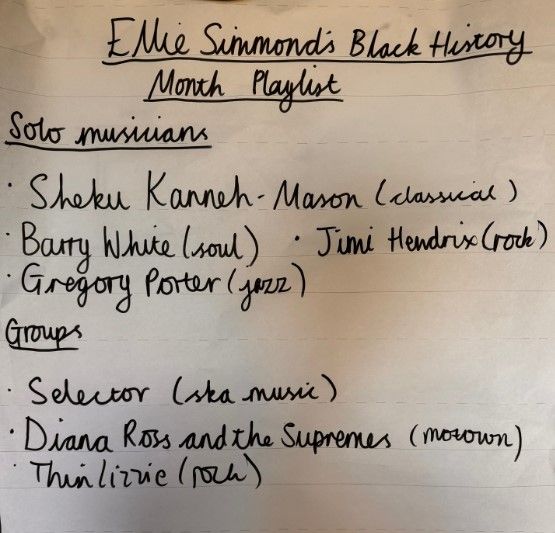 Ellie Simmond's Black History
Month Playlist
Solo musicians
· Sheku Kanneh-Mason (classical)
· Barry White (soul) · Jimi Hendrix (rock)
· Gregory Porter (jazz)
Groups
· Selector (ska music)
· Diana Ross and the Supremes (motown)
· Thin lizzie (rock)